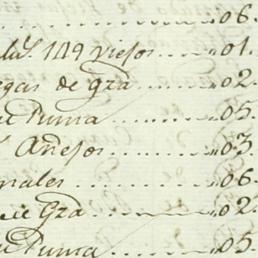 06.
119 viejos 01.
de gra 02.
Puma 05.
Añejos 03.
nales 06.
Gra 02.
Puma 05.